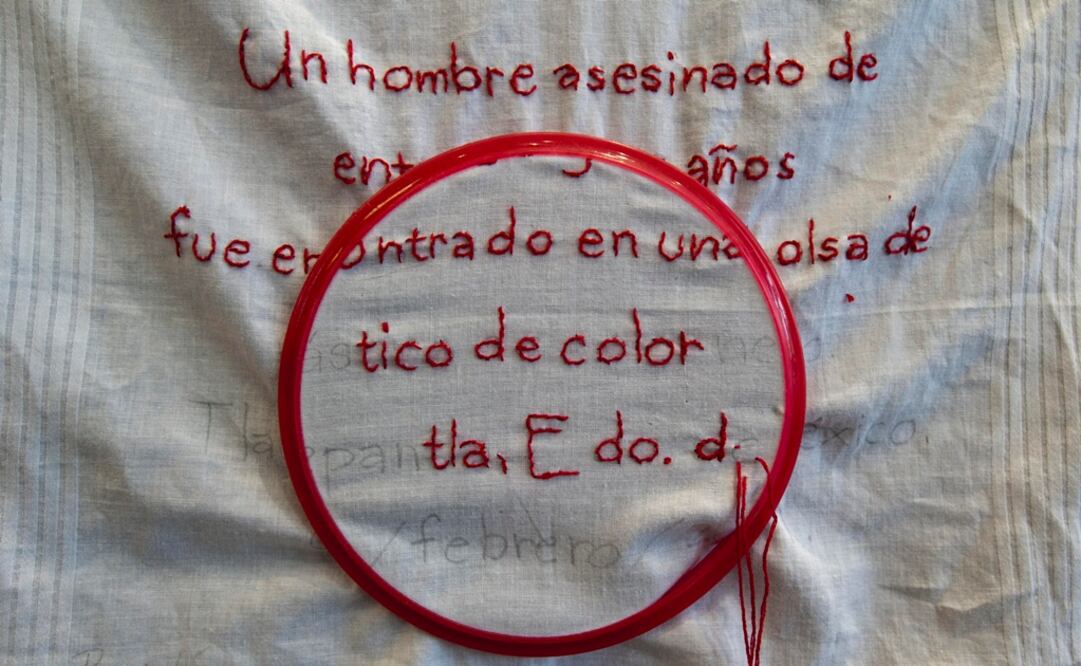 Un hombre asesinado de
años
fue en ontrado en una olsa de
tico de color
Tlalnepantla, Edo. de México
/febrero/